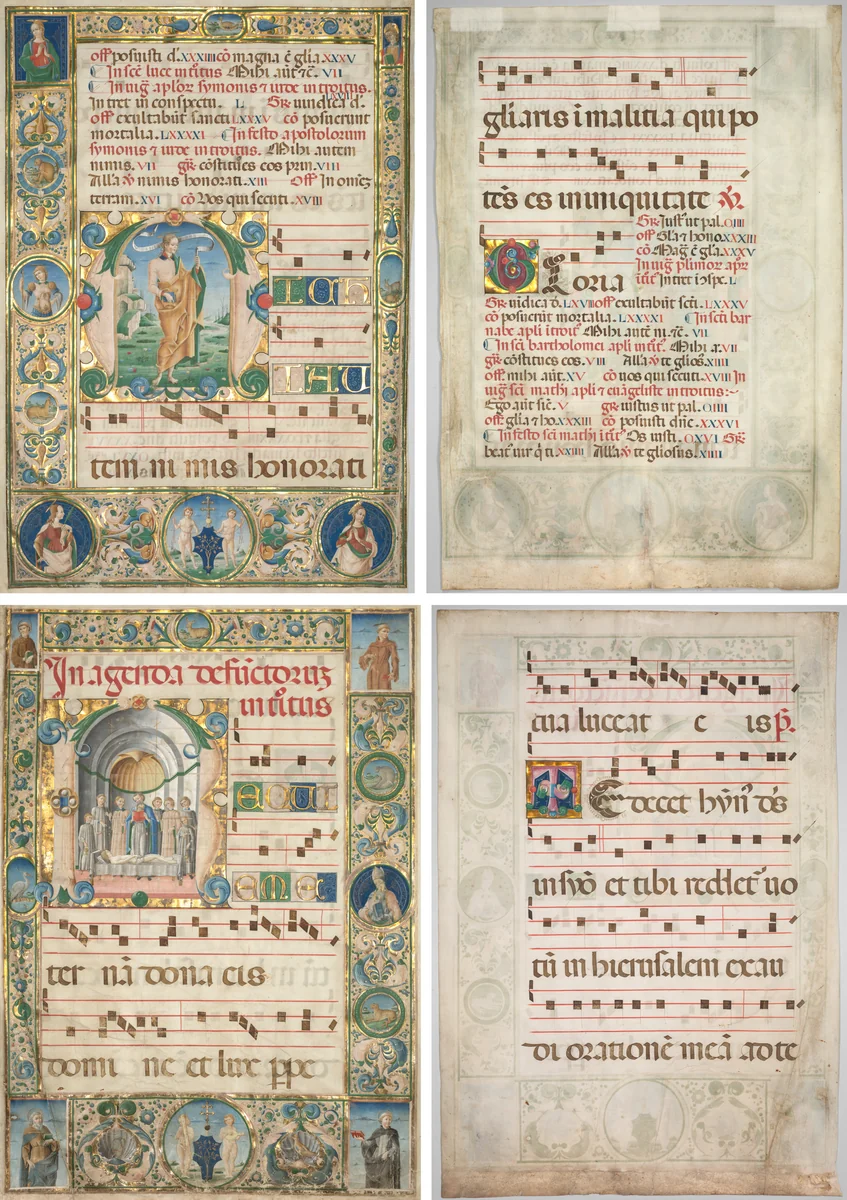 off posuisti d. XXXIIII cō magna ē glia XXXV
¶ In scē luce introitus Mihi aut̄ ⁊c̄. VII
¶ In uig aplor symonis ⁊ iude introitus.
Intret in conspectu. L Gr uindica d. LXVII
off exultabūt sancti LXXXV cō posuerunt
mortalia. LXXXXI ¶ In festo apostolorum
symonis ⁊ iude introitus. Mihi autem
nimis. VII gr cōstitues eos prin. VIII
Alla ꝟ nimis honorati. XIII Off In omēz
terram. XVI cō Vos qui secuti. XVIII
M ICH
I AU
tem ni mis honorati
gliaris i malitia qui po
tēs es in iniquitate ꝟ.
Gr Iust' ut pal. CIIII
off Gla ⁊ hono XXXIII
cō Mag ē gla. XXXV
In uig plimor apr
Intret ī ɔspe. L
Gloria
Gr uīdica d. LXVII off exultabūt scti. LXXXV
cō posuerūt mortalia. LXXXXI ¶ In scti bar
nabe apli itroit' Mihi autē ni. ⁊c̄. VII
¶ In scti bartholomei apli intit'. Mihi a. VII
gr cōstitues eos. VIII Alla ꝟ te glios. XIIII
off mihi aūt. XV cō uos qui secuti. XVIII In
uig sci mathi apli ⁊ euāgeliste itroit':~
Ego aūt sic̄. V gr iustus ut pal. CIIII
off glia ⁊ ho. XXXIII cō posuisti dn̄e. XXXVI
¶ In festo sci mathi itrit' Os iusti. CXVI Gr
beat' uir q̄ ti. XXIIII Alla ꝟ te gliosus. XIIII
In agenda defūctoruz
introitus
R EQUI
EM E
ter nā dona eis
domi ne et lux ppe
tua luceat e is p̄.
TE decet hȳn' d's
in syō et tibi reddet' uo
tū in hierusalem exau
di orationē meā ad te